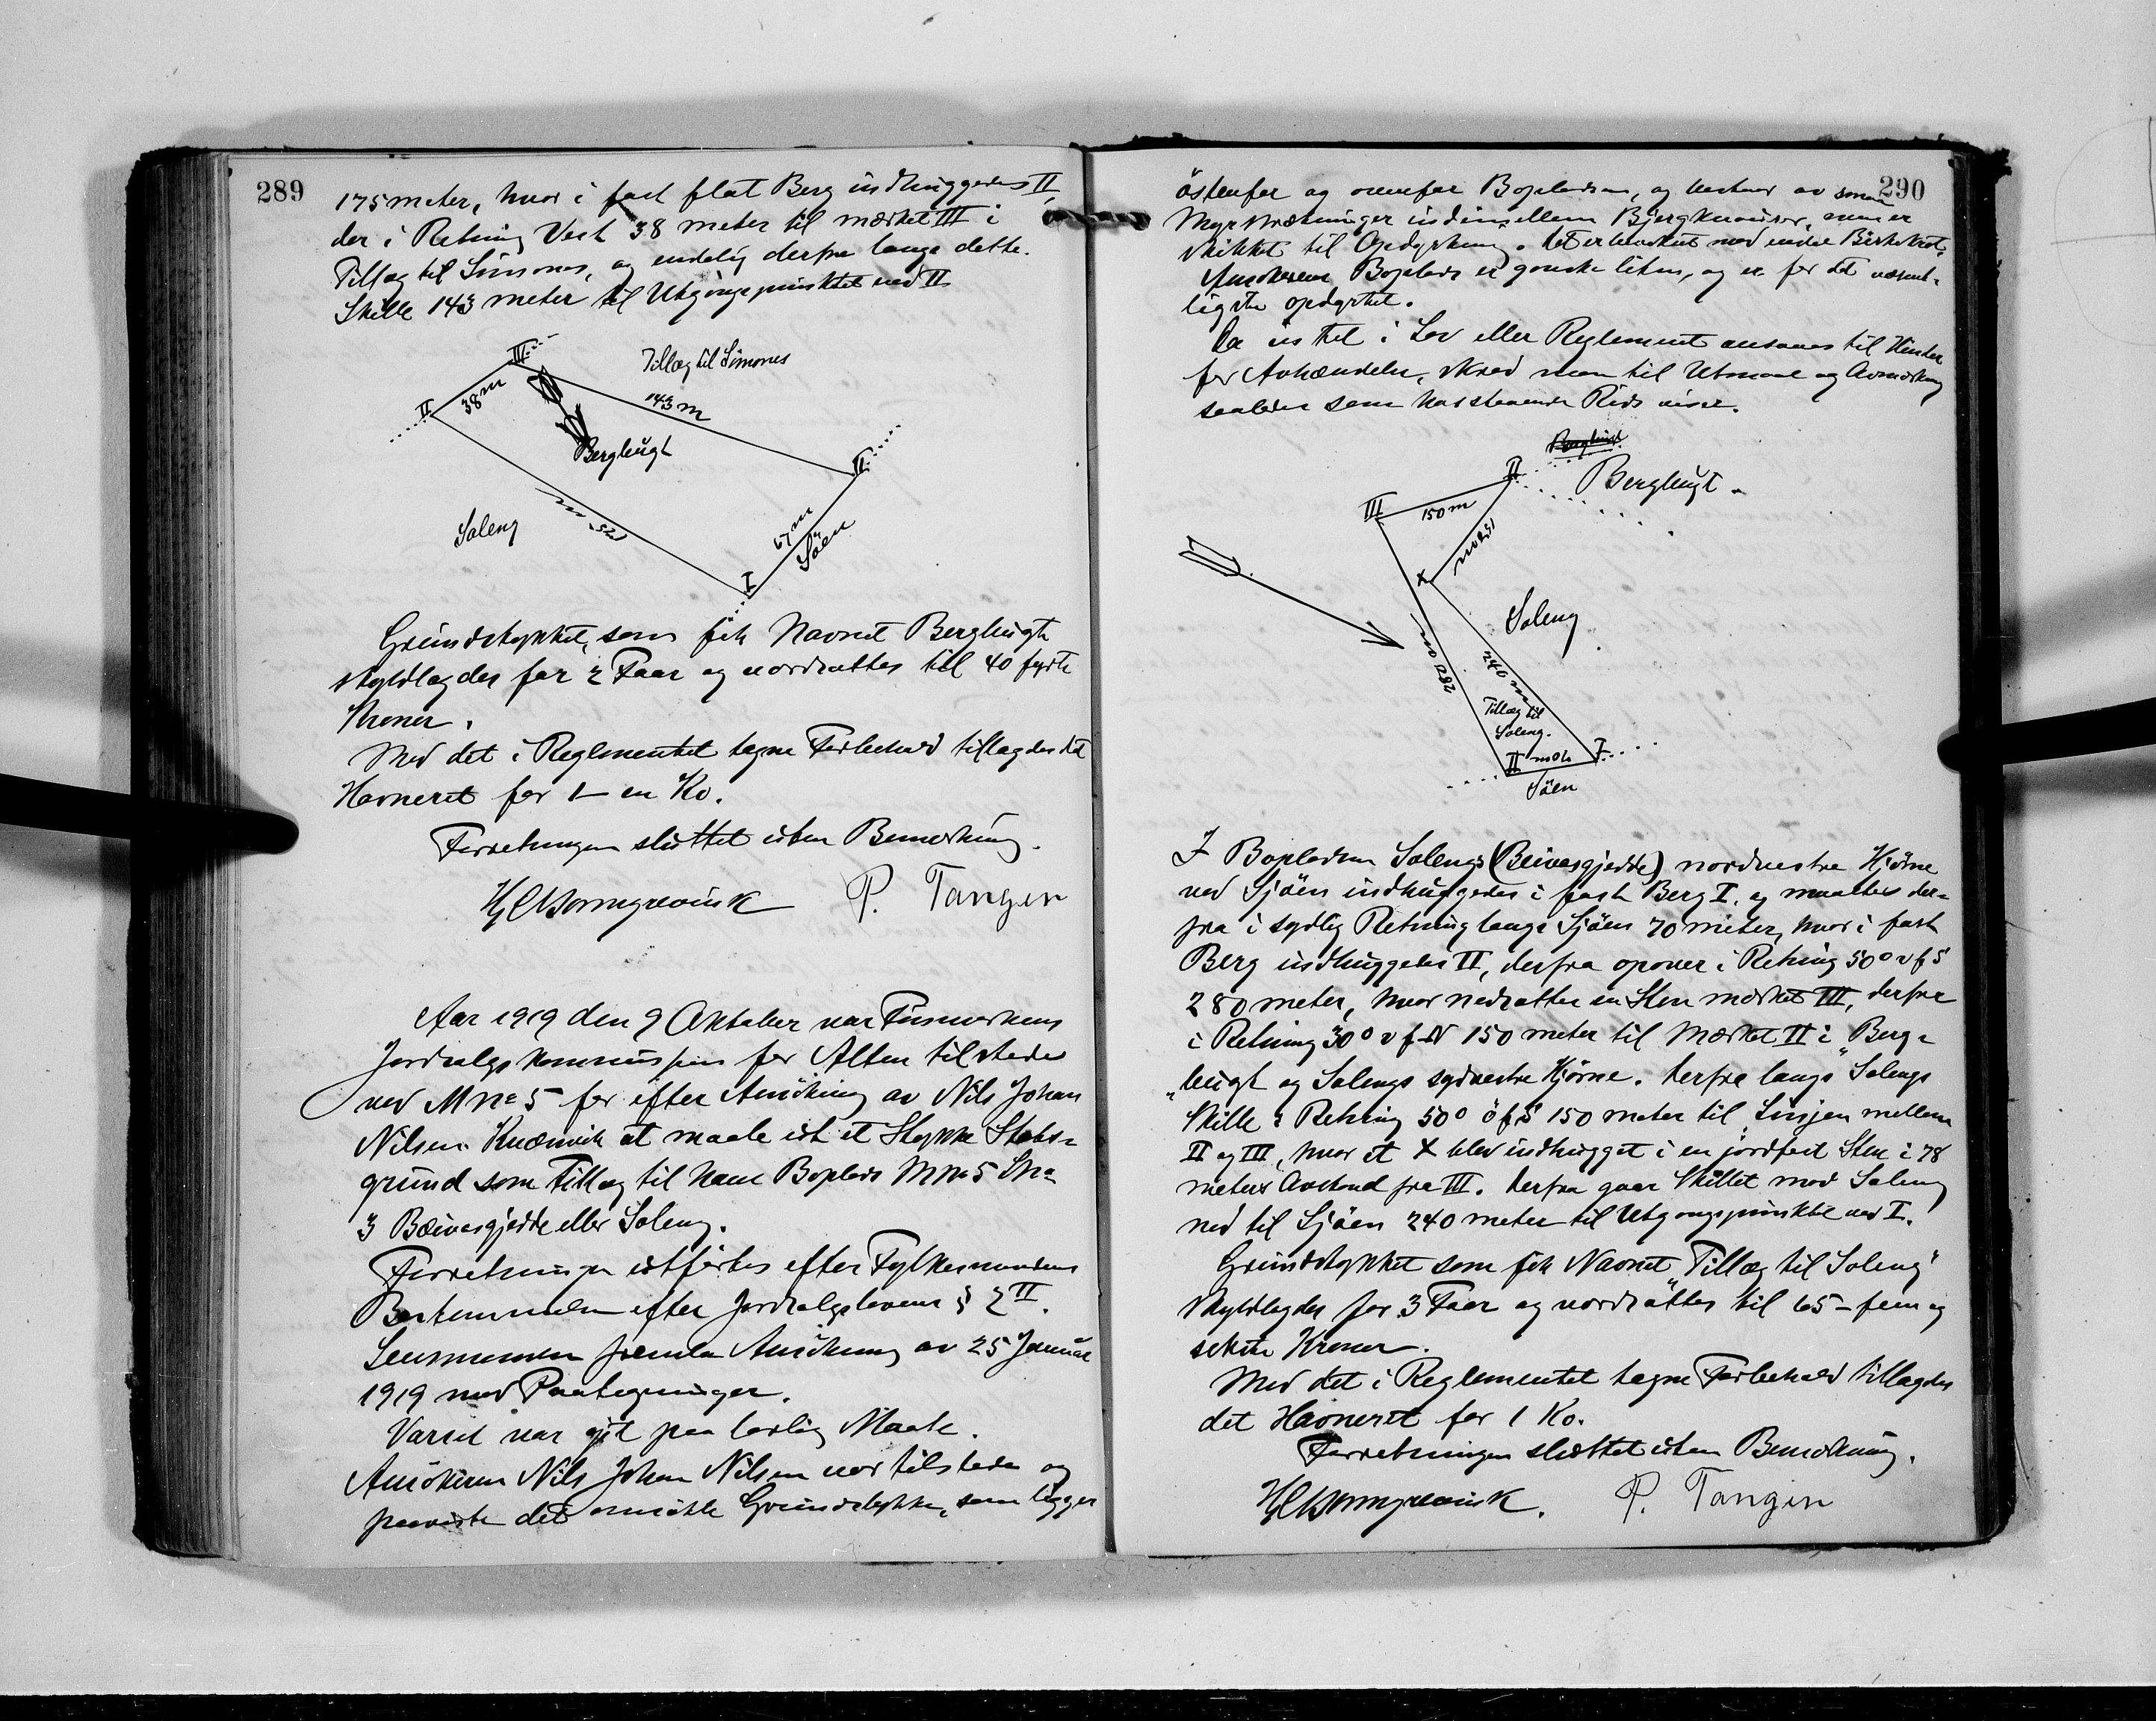 289
175 meter, hvor i fast flat Berg indhuggedes II,
der i Retning Vest 38 meter til mærket III i
Tillæg til Simones, og endelig derfra langs dette.
Skille 143 meter til Utgangspunktet ved II
III
Tillæg til Simones
II
38 m
143 m
Bergbugt
II
Soleng
175 m
67 m
Söen
I
Grundstykket, som fik Navnet Bergbugt
skyldlagdes for 2 Faar og værdsattes til 40 fyrti
Kroner.
Med det i Reglementet tagne Forbehold tillagdes det
Havneret for 1 – en Ko.
Forretningen sluttet uten Bemerkning.
P. Tangen
Aar 1919 den 9 Oktober var Finmarkens
Jordsalgskommission for Alten tilstede
ved M no 5 for efter Ansökning av Nils Johan
Nilsen Kvænvik at maale ut et Stykke Stats-
grund som Tillæg til hans Boplads Mno 5 Lno
3 Bæivasgjedde eller Soleng.
Forretningen utförtes efter Fylkesmandens
Bestemmelse efter Jordsalgslovens § 2 II.
Lensmanden fremla Ansökning av 25 Januar
1919 med Paategninger.
Varsel var git paa lovlig Maate.
Ansökeren Nils Johan Nilsen var tilstede og
paaviste det ansökte Grundstykke, som ligger
290
östenfor og ovenfor Bopladsen, og bestaar av smaa
Myrstrækninger indimellem Bjergknauser, som er
skikket til Opdyrkning. Det er bevokset med endel Birkekrat.
Ansökerens Boplads er ganske liten, og er for det væsent-
ligste opdyrket.
Da intet i Lov eller Reglement ansaaes til Hinder
for Avhændelse, skred man til Utmaal og Avmerkning
saaledes som hosstaaende Rids viser.
II
Bergbugt.
III
150 m
150 m
x
Soleng
280 m
240 m
Tillæg til
Soleng.
II 70 m I
Söen
I Bopladsen Solengs (Beivasgjedde) nordvestre Hjörne
ved Sjöen indhuggedes i fast Berg I. og maaltes der-
fra i sydlig Retning langs Sjöen 70 meter, hvor i fast
Berg indhuggedes II, derfra opover i Retning 50° v f S
280 meter, hvor nedsattes en Sten merket III, derfra
i Retning 30° v f N 150 meter til Mærket II i „Berg-
„bugt og Solengs sydvestre Hjörne. Derfra langs Solengs
Skille i Retning 50° ö f S 150 meter til Linjen mellem
II og III, hvor et x blev indhugget i en jordfast Sten i 78
meters Avstand fra III. Derfra gaar Skillet mod Soleng
ned til Sjöen 240 meter til Utgangspunktet ved I.
Grundstykket som fik Navnet „Tillæg til Soleng"
skyldlagdes for 3 Faar og værdsattes til 65 – fem og
seksti Kroner.
Med det i Reglementet tagne Forbehold tillagdes
det Havneret for 1 Ko.
Forretningen sluttet uten Bemerkning.
P. Tangen